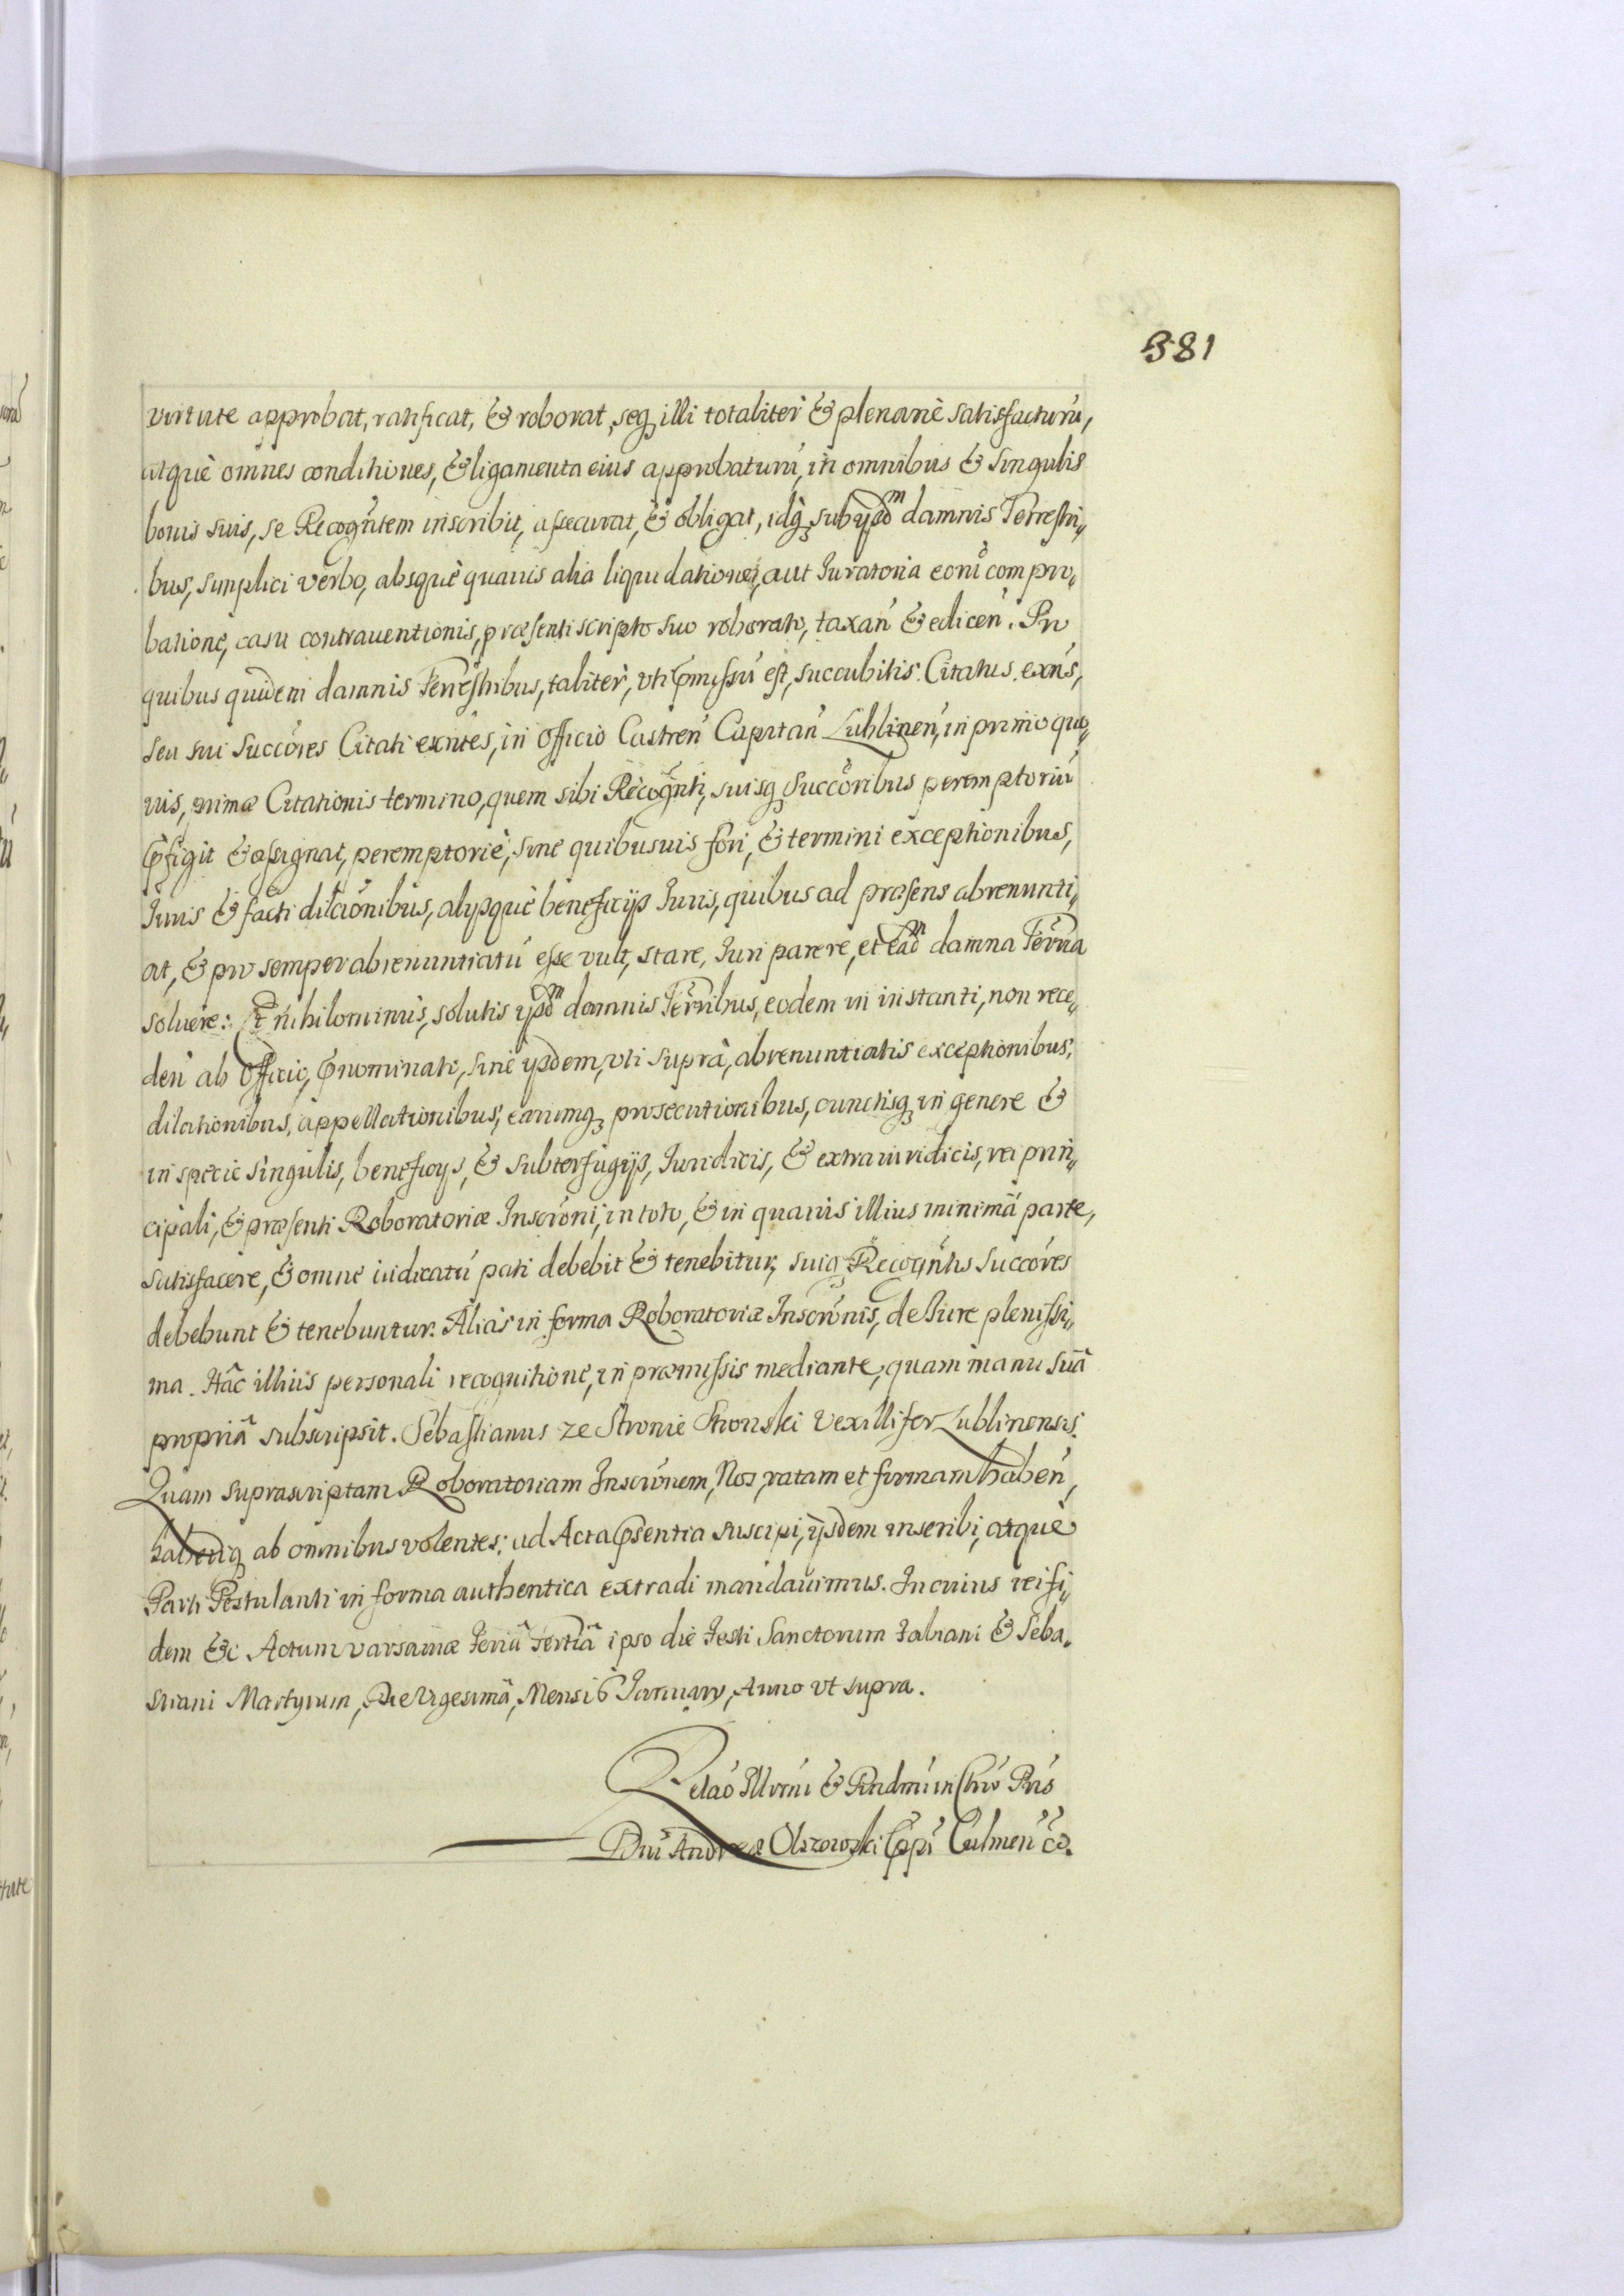 381
virtute approbat, ratificat, & roborat, seq illi totaliter & plenarie satisfacturu,
atque omnes conditiones, & ligamenta eius approbaturu, in omnibus & singulis
bonis suis, se Recogntem inscribit, assecurat, & obligat, idq, sub ysdm damnis Terrestri„
bus, simplici verbo, absque quauis alia liquidatione, aut Iuratoria eoru compro„
batione, casu contrauentionis, præsenti scripto suo roborato, taxan & edicen. Pro
quibus quidem damnis Terrestribus, taliter, vti pmissu est, succubitis. Citatus exns,
seu sui Succores Citati exntes, in Officio Castren Capitan Lublinen, in primo qua„
uis, primæ Citationis termino, quem sibi Recognti, suisq Succoribus peremptoriu
pfigit & assignat, peremptorie, sine quibusuis fori, & termini exceptionibus,
Iuris & facti dilaonibus, alysque beneficys Iuris, quibus ad præsens abrenunti„
at, & pro semper abrenuntiatu esse vult, stare, Iuri parere, et eadm damna Terria
soluere: Et nihilominus, solutis ysdm damnis Terribus, eodem in instanti, non rece„
den ab Officio, pnominati, sine ysdem, vti supra, abrenuntiatis exceptionibus,
dilationibus, appellationibus, earumq prosecutionibus, cunctisq in genere &
in specie singulis, beneficys, & subterfugys, Iuridicis, & extraiuridicis, rei prin„
cipali, & præsenti Roboratoriæ Inscroni, in toto, & in quauis illius minima parte,
satisfacere, & omne iudicatu pati debebit & tenebitur, suiq Recogntis Succores
debebunt & tenebuntur. Alias in forma Roboratoriæ Inscronis, de Iure plenissi„
ma. Hac illius personali recognitione, in præmissis mediante, quam manu sua
propria subscripsit. Sebastianus ze Stronie Stronski Vexillifer Lublinensis.
Quam suprascriptam Roboratoriam Inscronem, Nos, ratam et firmam haben,
haberiq ab omnibus volentes; ad Acta psentia suscipi, ysdem inseribi, atque
Parti Postulanti in forma authentica extradi mandauimus. In cuius rei fi„
dem &c Actum varsauiæ Feria Tertia ipso die Festi Sanctorum Fabiani & Seba„
stiani Martyrum, Die Vigesima, Mensis January, Anno vt supra.
Relao Illrmi & Rndmi in Chro Pris
Dni Andreæ Olszowski Epi Culmen &.